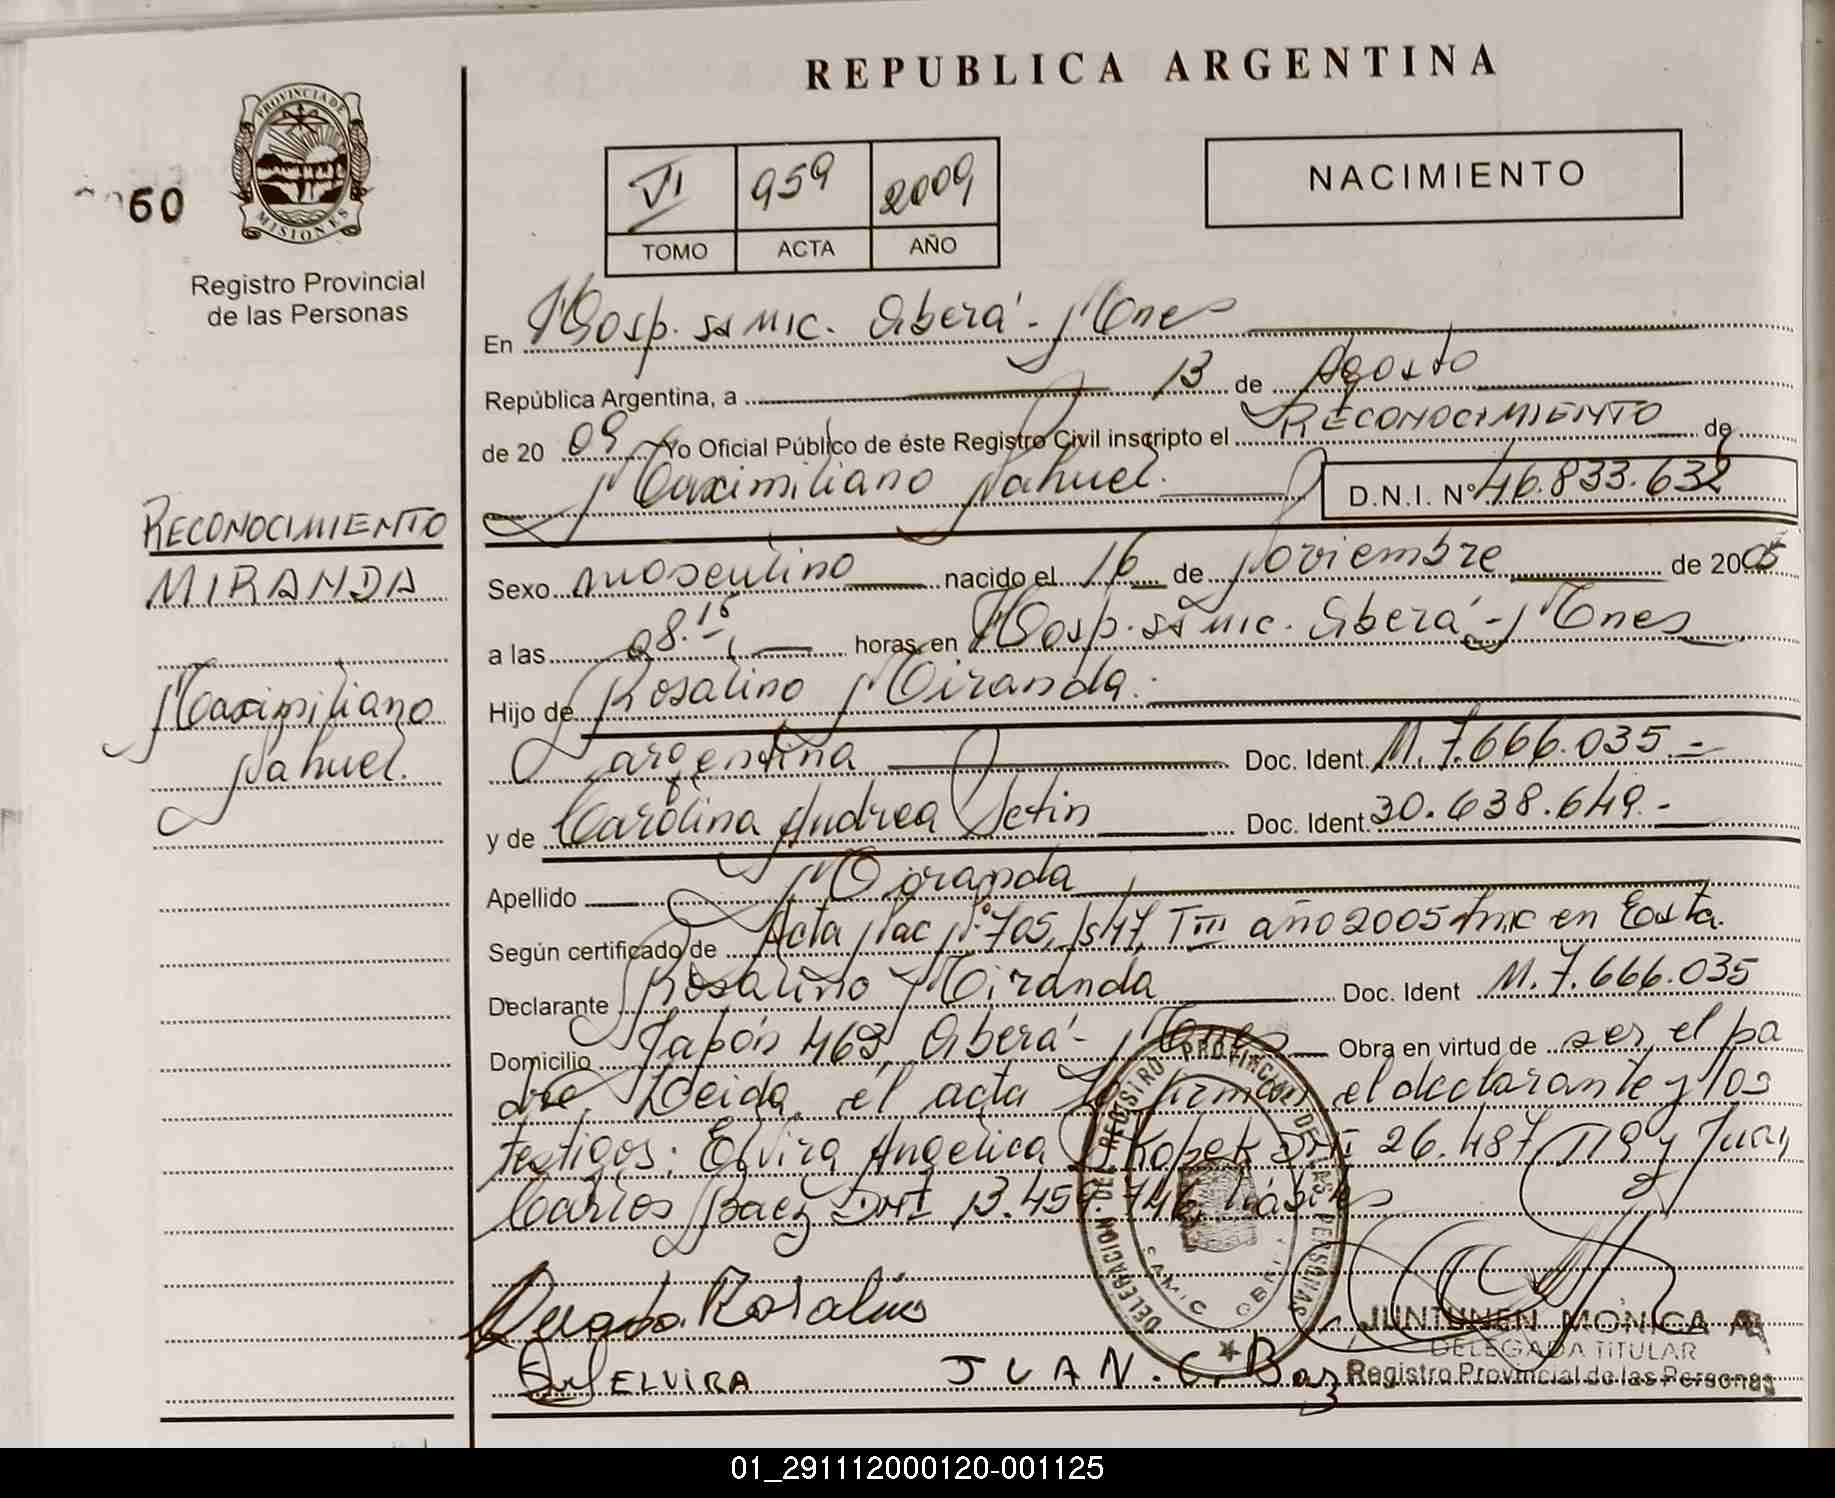 REPUBLICA ARGENTINA
PROVINCIA DE
MISIONES
60
Registro Provincial
de las Personas
VI 959 2009
TOMO ACTA AÑO
NACIMIENTO
En Hosp. SAMIC. Oberá - Mnes
República Argentina, a 13 de Agosto
de 2009 Yo Oficial Público de éste Registro Civil inscripto el RECONOCIMIENTO de
Maximiliano Nahuel. D.N.I. Nº 46.833.632
RECONOCIMIENTO
MIRANDA
Maximiliano
Nahuel.
Sexo masculino nacido el 16 de Noviembre de 2005
a las 08.15 horas, en Hosp. SAMIC. Oberá - Mnes
Hijo de Rosalino Miranda.
argentina Doc. Ident. M. 7.666.035.-
y de Carolina Andrea Setin Doc. Ident. 30.638.649.-
Apellido Miranda
Según certificado de Acta Nac Nº 705, TIII año 2005 en Esta.
Declarante Rosalino Miranda Doc. Ident M. 7.666.035
Domicilio Japón 469 Oberá - Mnes Obra en virtud de ser el pa
dre. Leida el acta la firman el declarante y los
testigos: Elvira Angelica Kopek DNI 26.487.119 y Juan
Carlos Baez DNI 13.459.746, hábiles
DELEGACION DEL REGISTRO PROVINCIAL DE LAS PERSONAS
SAMIC OBERA
Rosalino
ELVIRA JUAN. C. Baz
JUNTUNEN MONICA A
DELEGADA TITULAR
Registro Provincial de las Personas
01_291112000120-001125